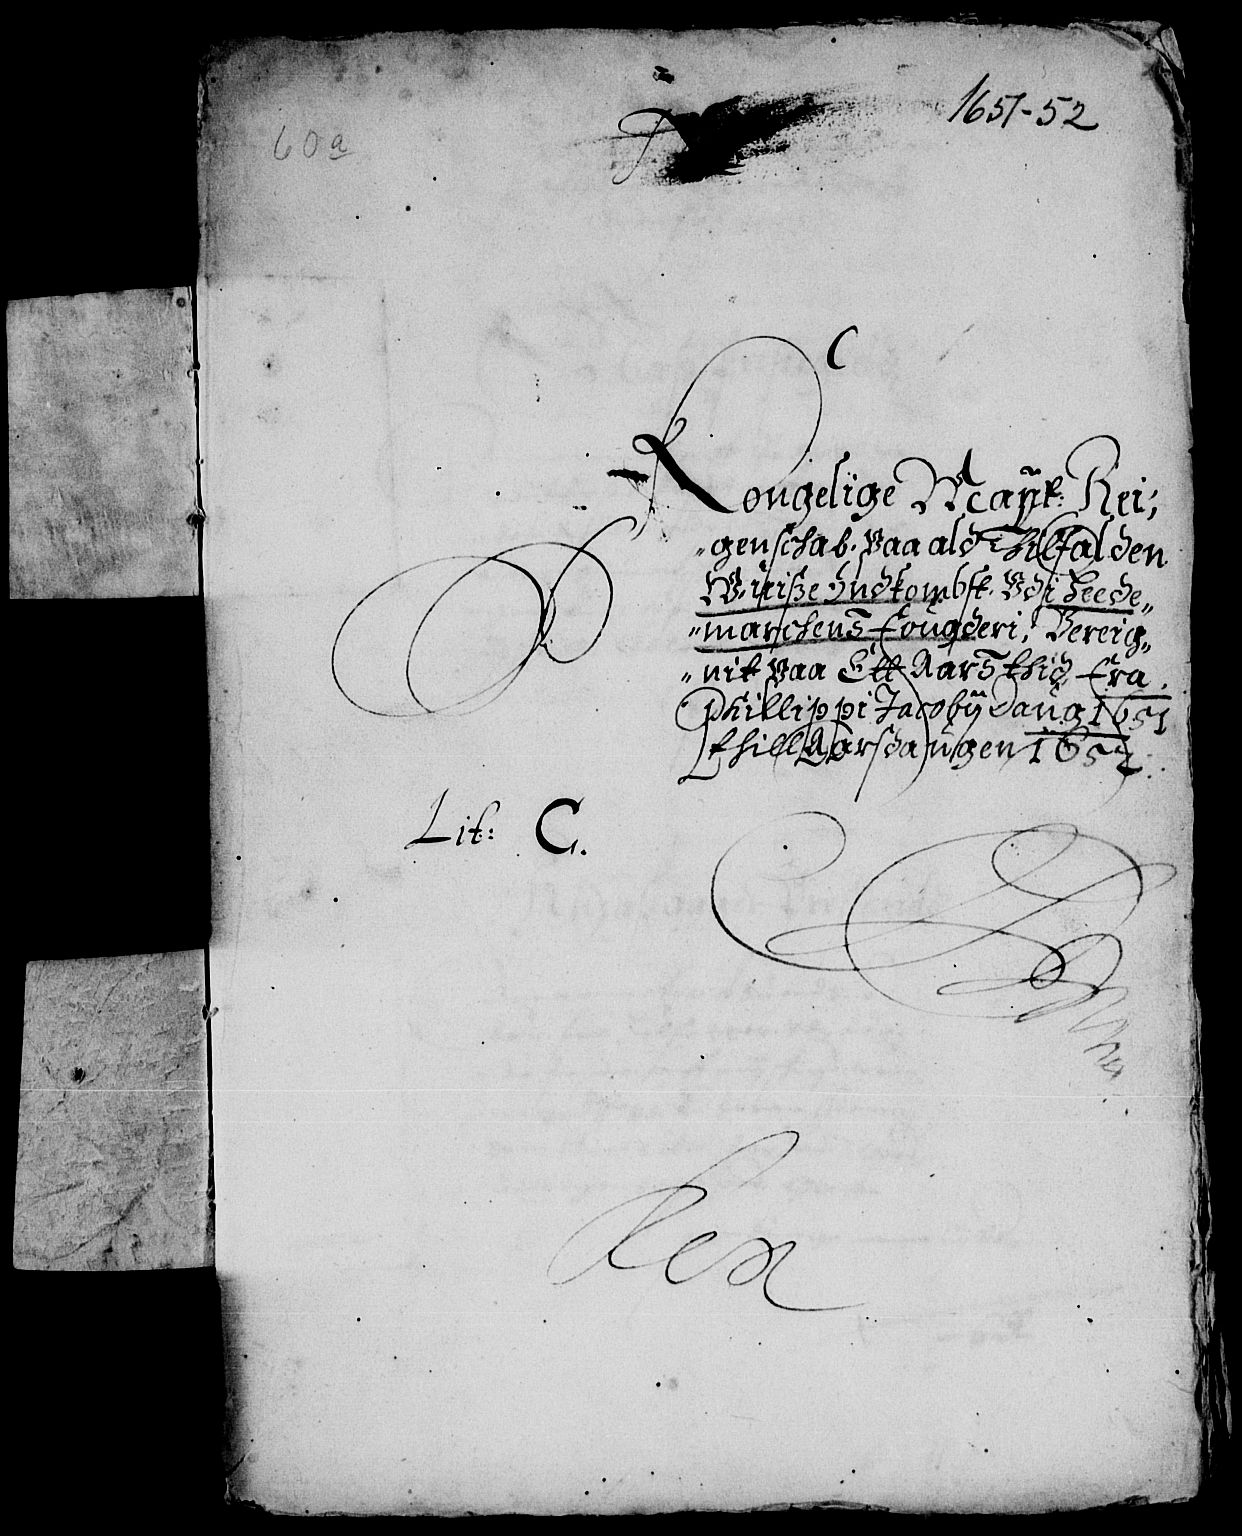 1651-52
60a
C
Kongelige Maÿt: Rei;
„genschab. Paa ald Thilfalden
Wiße Indkombst. Vdi Heede„
„marchens fougderi, Bereig„
„nit Paa Ett Aars thid, fra
Phillippi Jacobÿ daug 1651
thill Aarsdaugen 1652
Lit: C.
Rex